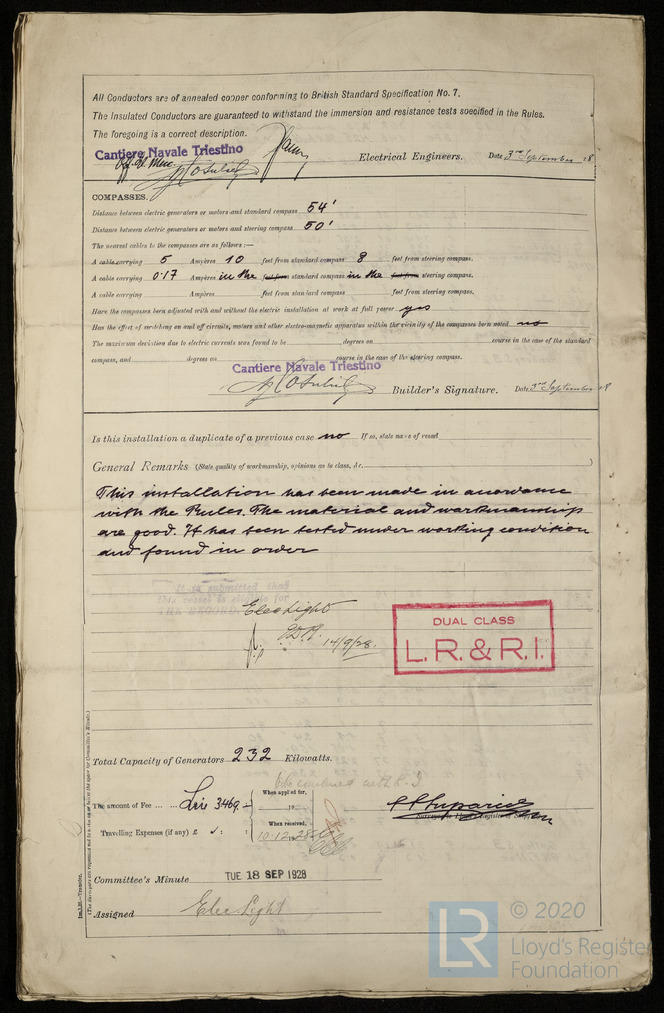 All Conductors are of annealed copper conforming to British Standard Specification No. 7.
The Insulated Conductors are guaranteed to withstand the immersion and resistance tests specified in the Rules.
The foregoing is a correct description.
Cantiere Navale Triestino
Electrical Engineers. Date 3rd September 28
COMPASSES.
Distance between electric generators or motors and standard compass 54'
Distance between electric generators or motors and steering compass 50'
The nearest cables to the compasses are as follows :—
A cable carrying 5 Ampères 10 feet from standard compass 8 feet from steering compass.
A cable carrying 0.17 Ampères in the feet from standard compass in the feet from steering compass.
A cable carrying Ampères feet from standard compass feet from steering compass.
Have the compasses been adjusted with and without the electric installation at work at full power yes
Has the effect of switching on and off circuits, motors and other electro-magnetic apparatus within the vicinity of the compasses been noted no
The maximum deviation due to electric currents was found to be degrees on course in the case of the standard
compass, and degrees on course in the case of the steering compass.
Cantiere Navale Triestino
Builder's Signature. Date 3rd September 28
Is this installation a duplicate of a previous case no If so, state name of vessel
General Remarks (State quality of workmanship, opinions as to class, &c.)
This installation has been made in accordance
with the Rules. The material and workmanship
are good. It has been tested under working condition
and found in order
It is submitted that
this vessel is eligible for
THE RECORD. Elec Light
14/9/28.
DUAL CLASS
L.R. & R.I.
Total Capacity of Generators 232 Kilowatts.
The amount of Fee ... ... Lire 3469.-
When applied for,
19
Travelling Expenses (if any) £ : :
When received,
10.12.28
Surveyor to Lloyd's Register of Shipping.
Committee's Minute TUE 18 SEP 1928
Assigned Elec Light
Im.3,28.—Transfer.
(The Surveyors are requested not to write on or below the space for Committee's Minute.)
LR
© 2020
Lloyd's Register
Foundation